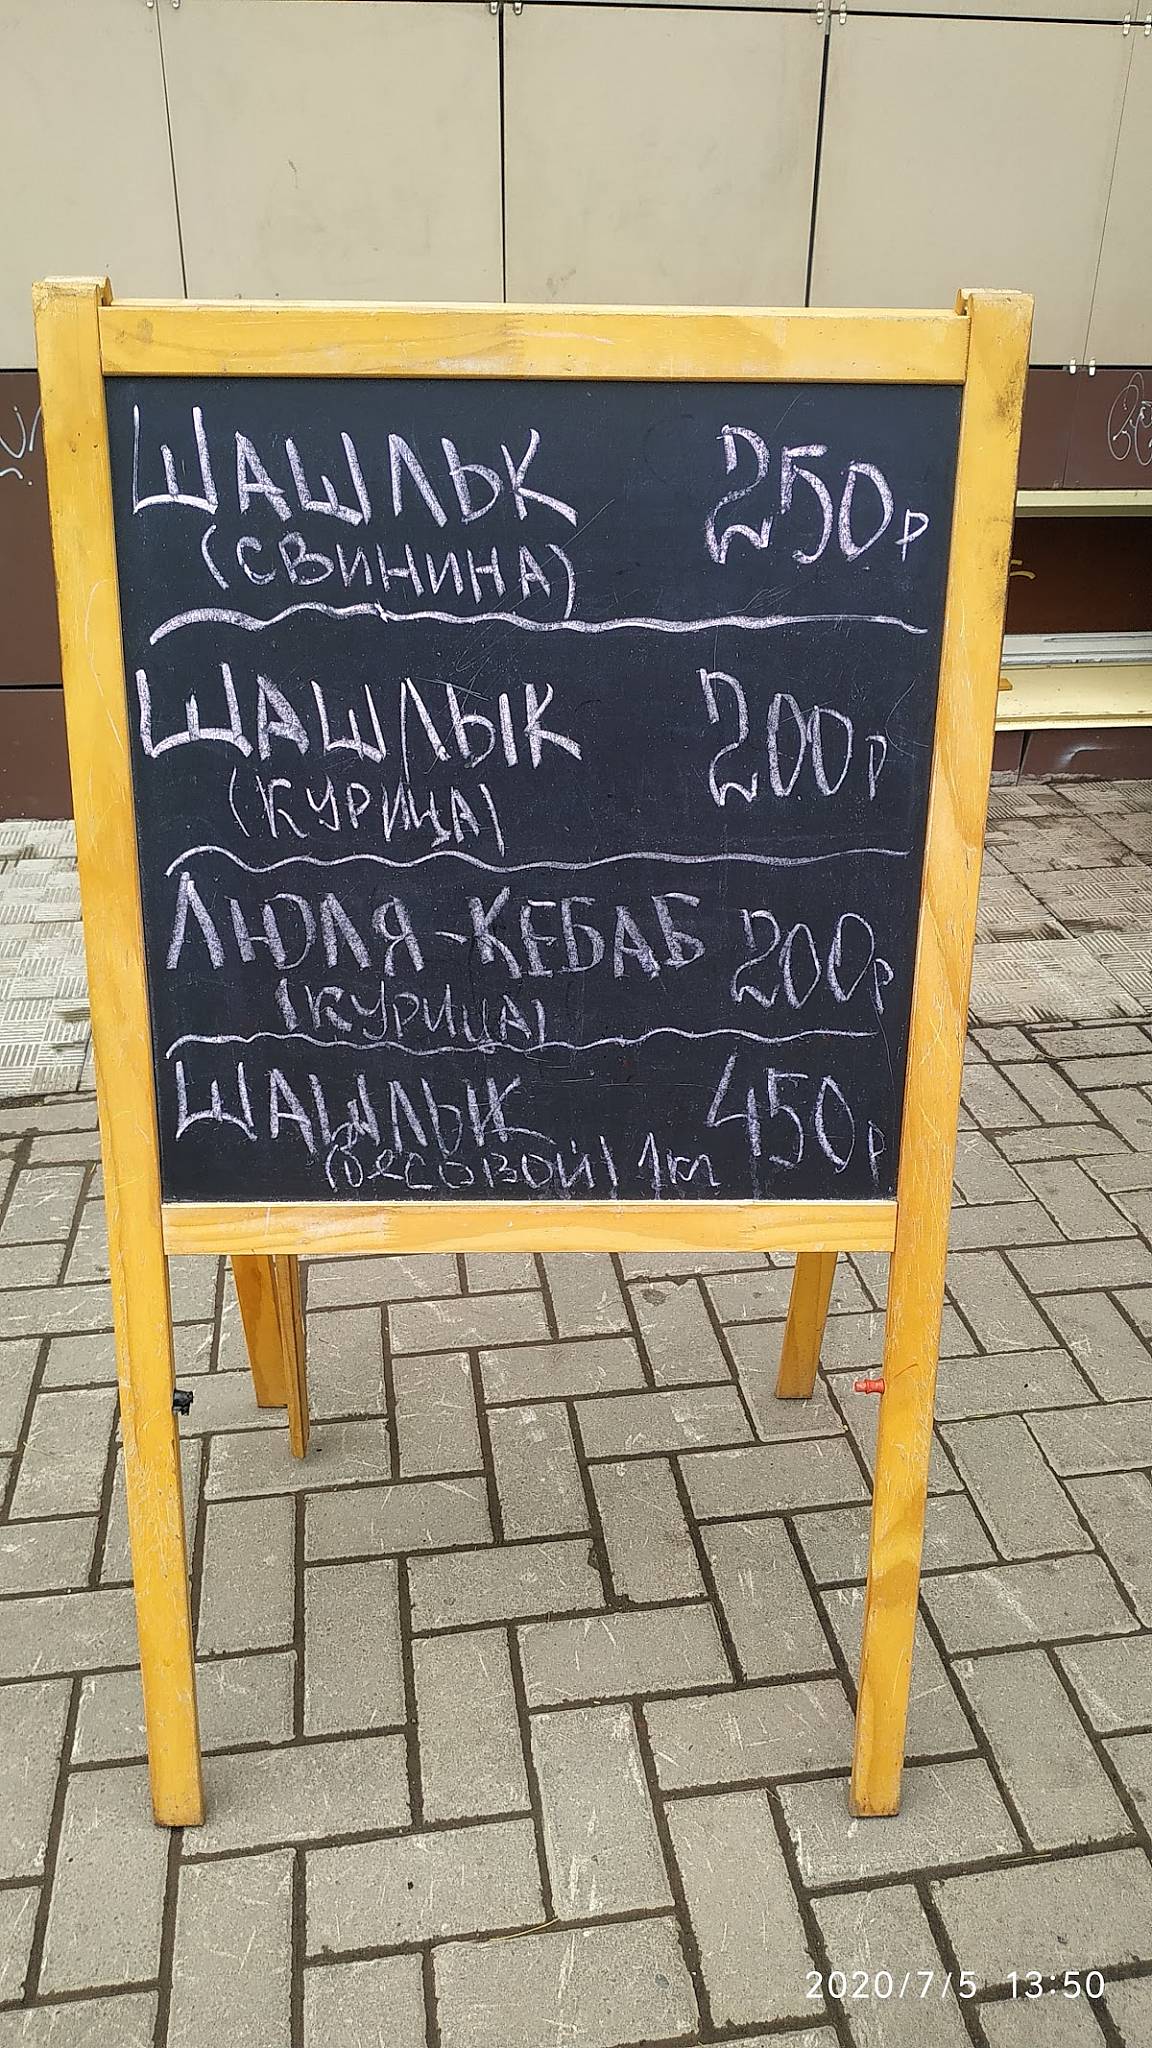 ШАШЛЬК 250р
(СВИНИНА)
ШАШЛЫК 200р
(КУРИЦА)
ЛЮЛЯ-КЕБАБ 200р
(КУРИЦА)
ШАШЛЫК 450р
(Весовой) 1кг
2020/7/5 13:50